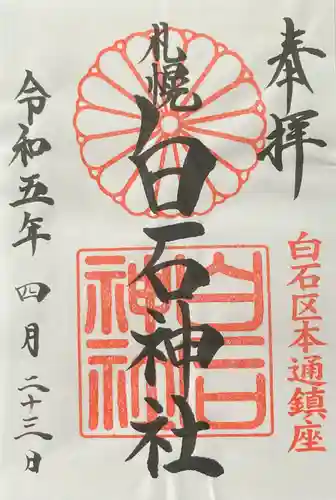 奉拝
白石区本通鎮座
札幌
白石神社
白石神社
令和五年四月二十三日